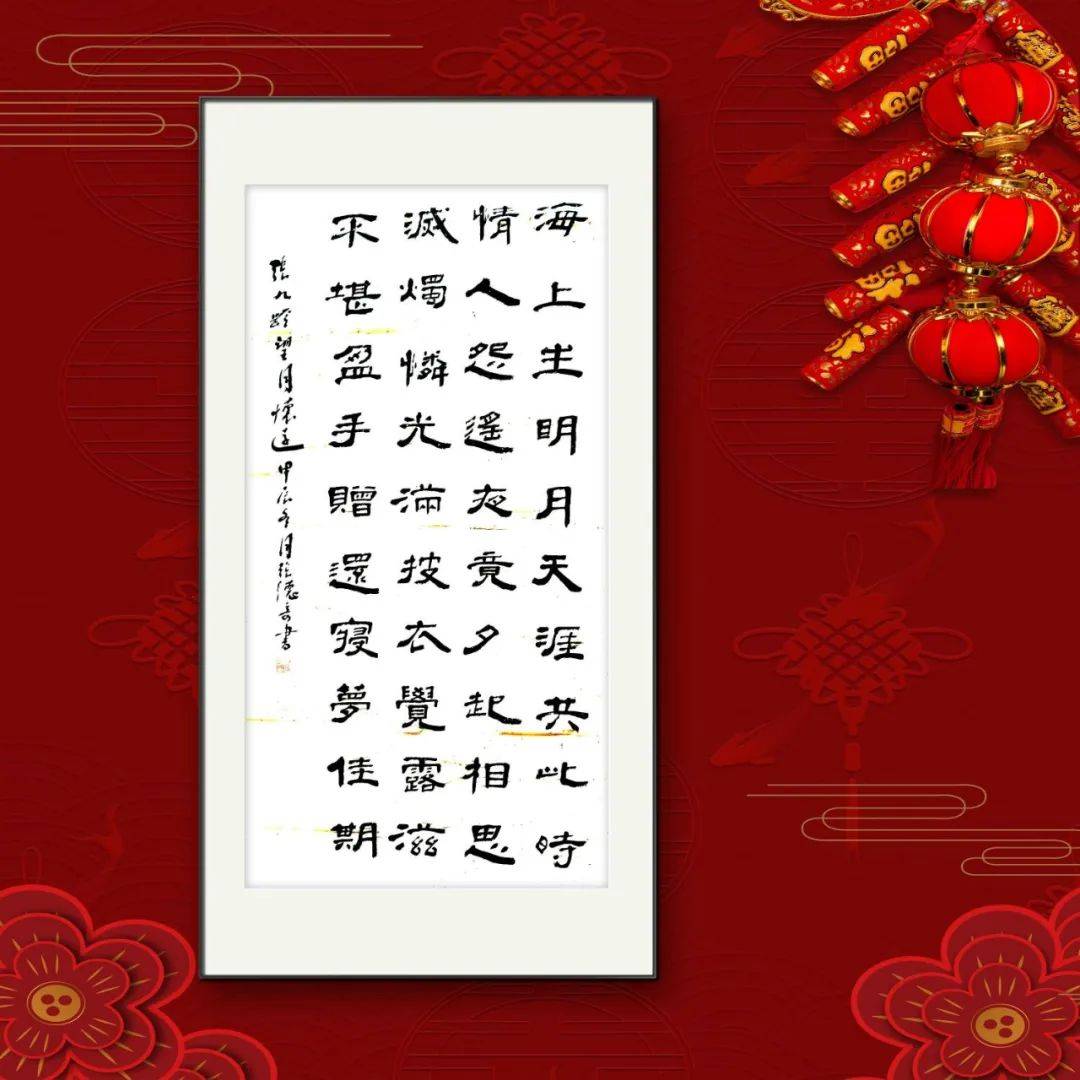 海上生明月天涯共此時
情人怨遙夜竟夕起相思
滅燭憐光滿披衣覺露滋
不堪盈手贈還寢夢佳期
張九齡望月懷遠甲辰冬月書